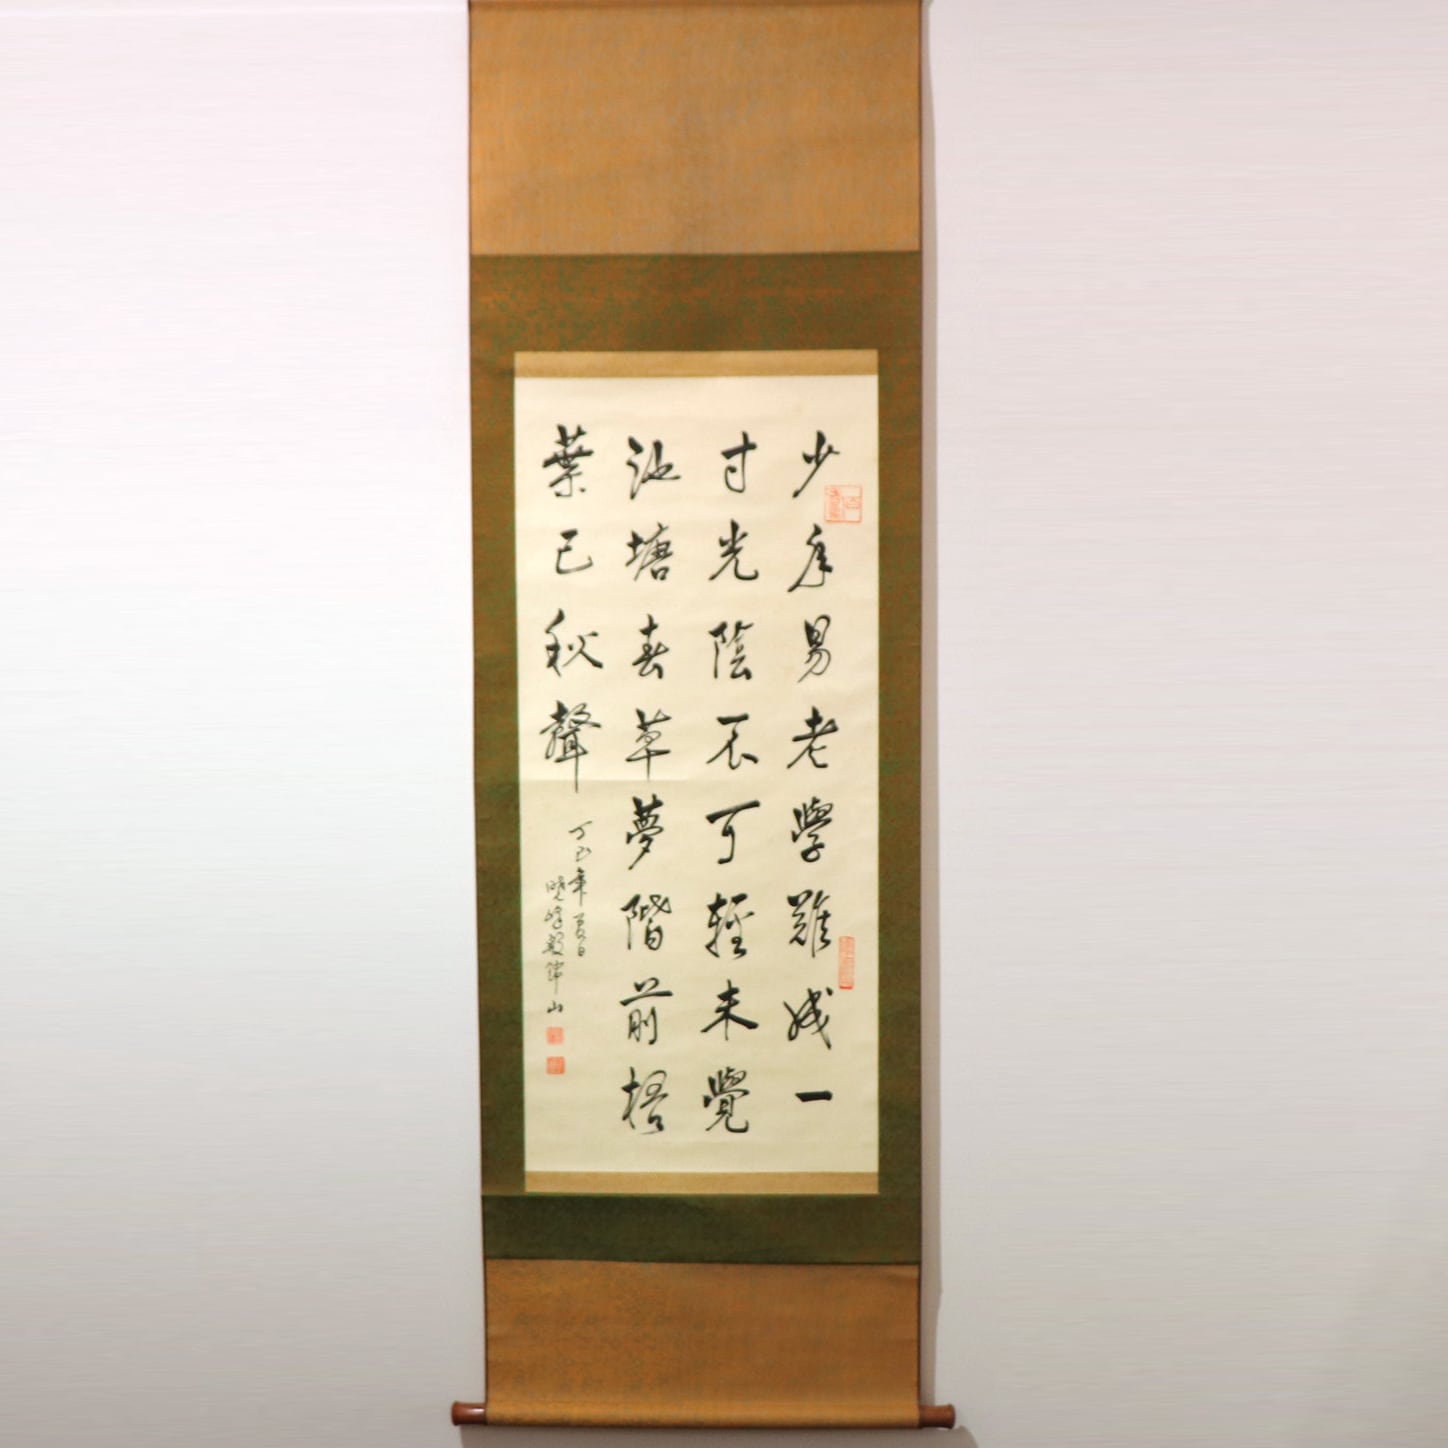 少年易老學難成一
寸光陰不可輕未覺
池塘春草夢階前梧
葉已秋聲
丁巳年
曉峰
山